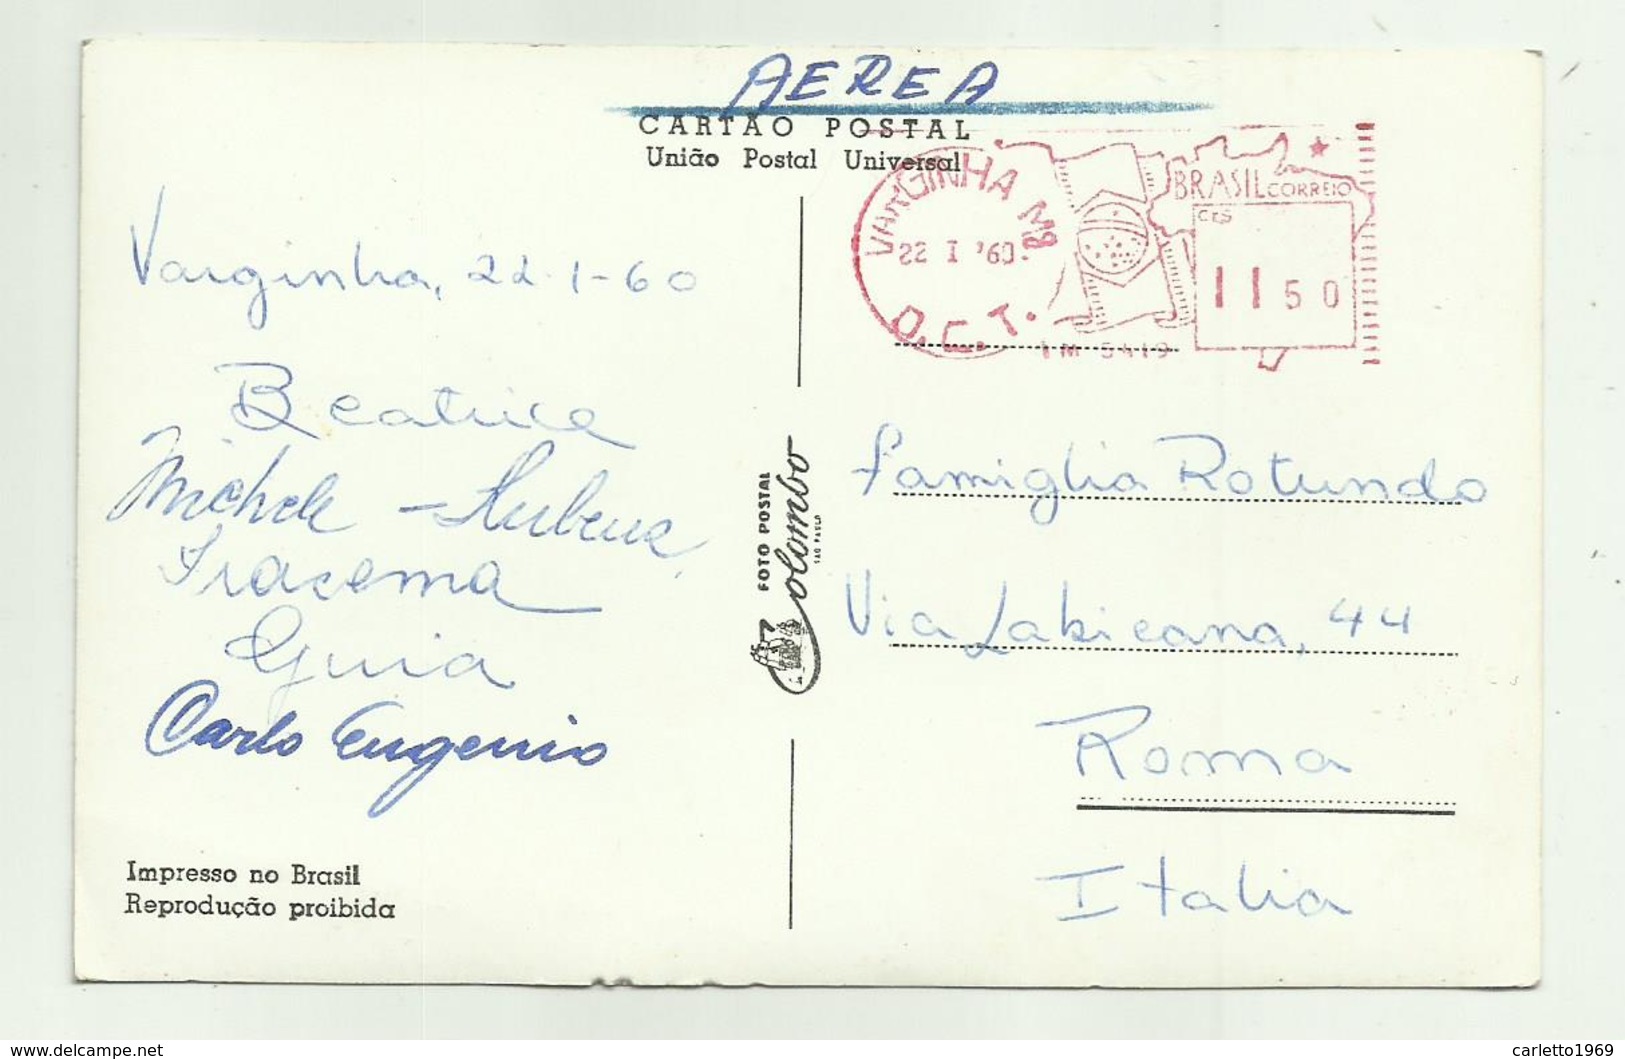 AEREA
CARTÃO POSTAL
União Postal Universal
VARGINHA MG
22 I '60
D.C.T.
BRASIL CORREIO
CrS
11 50
IM 5419
Varginha, 22-1-60
Beatrice
Michele - Rubens
Iracema
Guia
Carlo Eugenio
FOTO POSTAL
Colombo
SÃO PAULO
Famiglia Rotundo
Via Labicana, 44
Roma
Italia
Impresso no Brasil
Reprodução proibida
www.delcampe.net
carletto1969